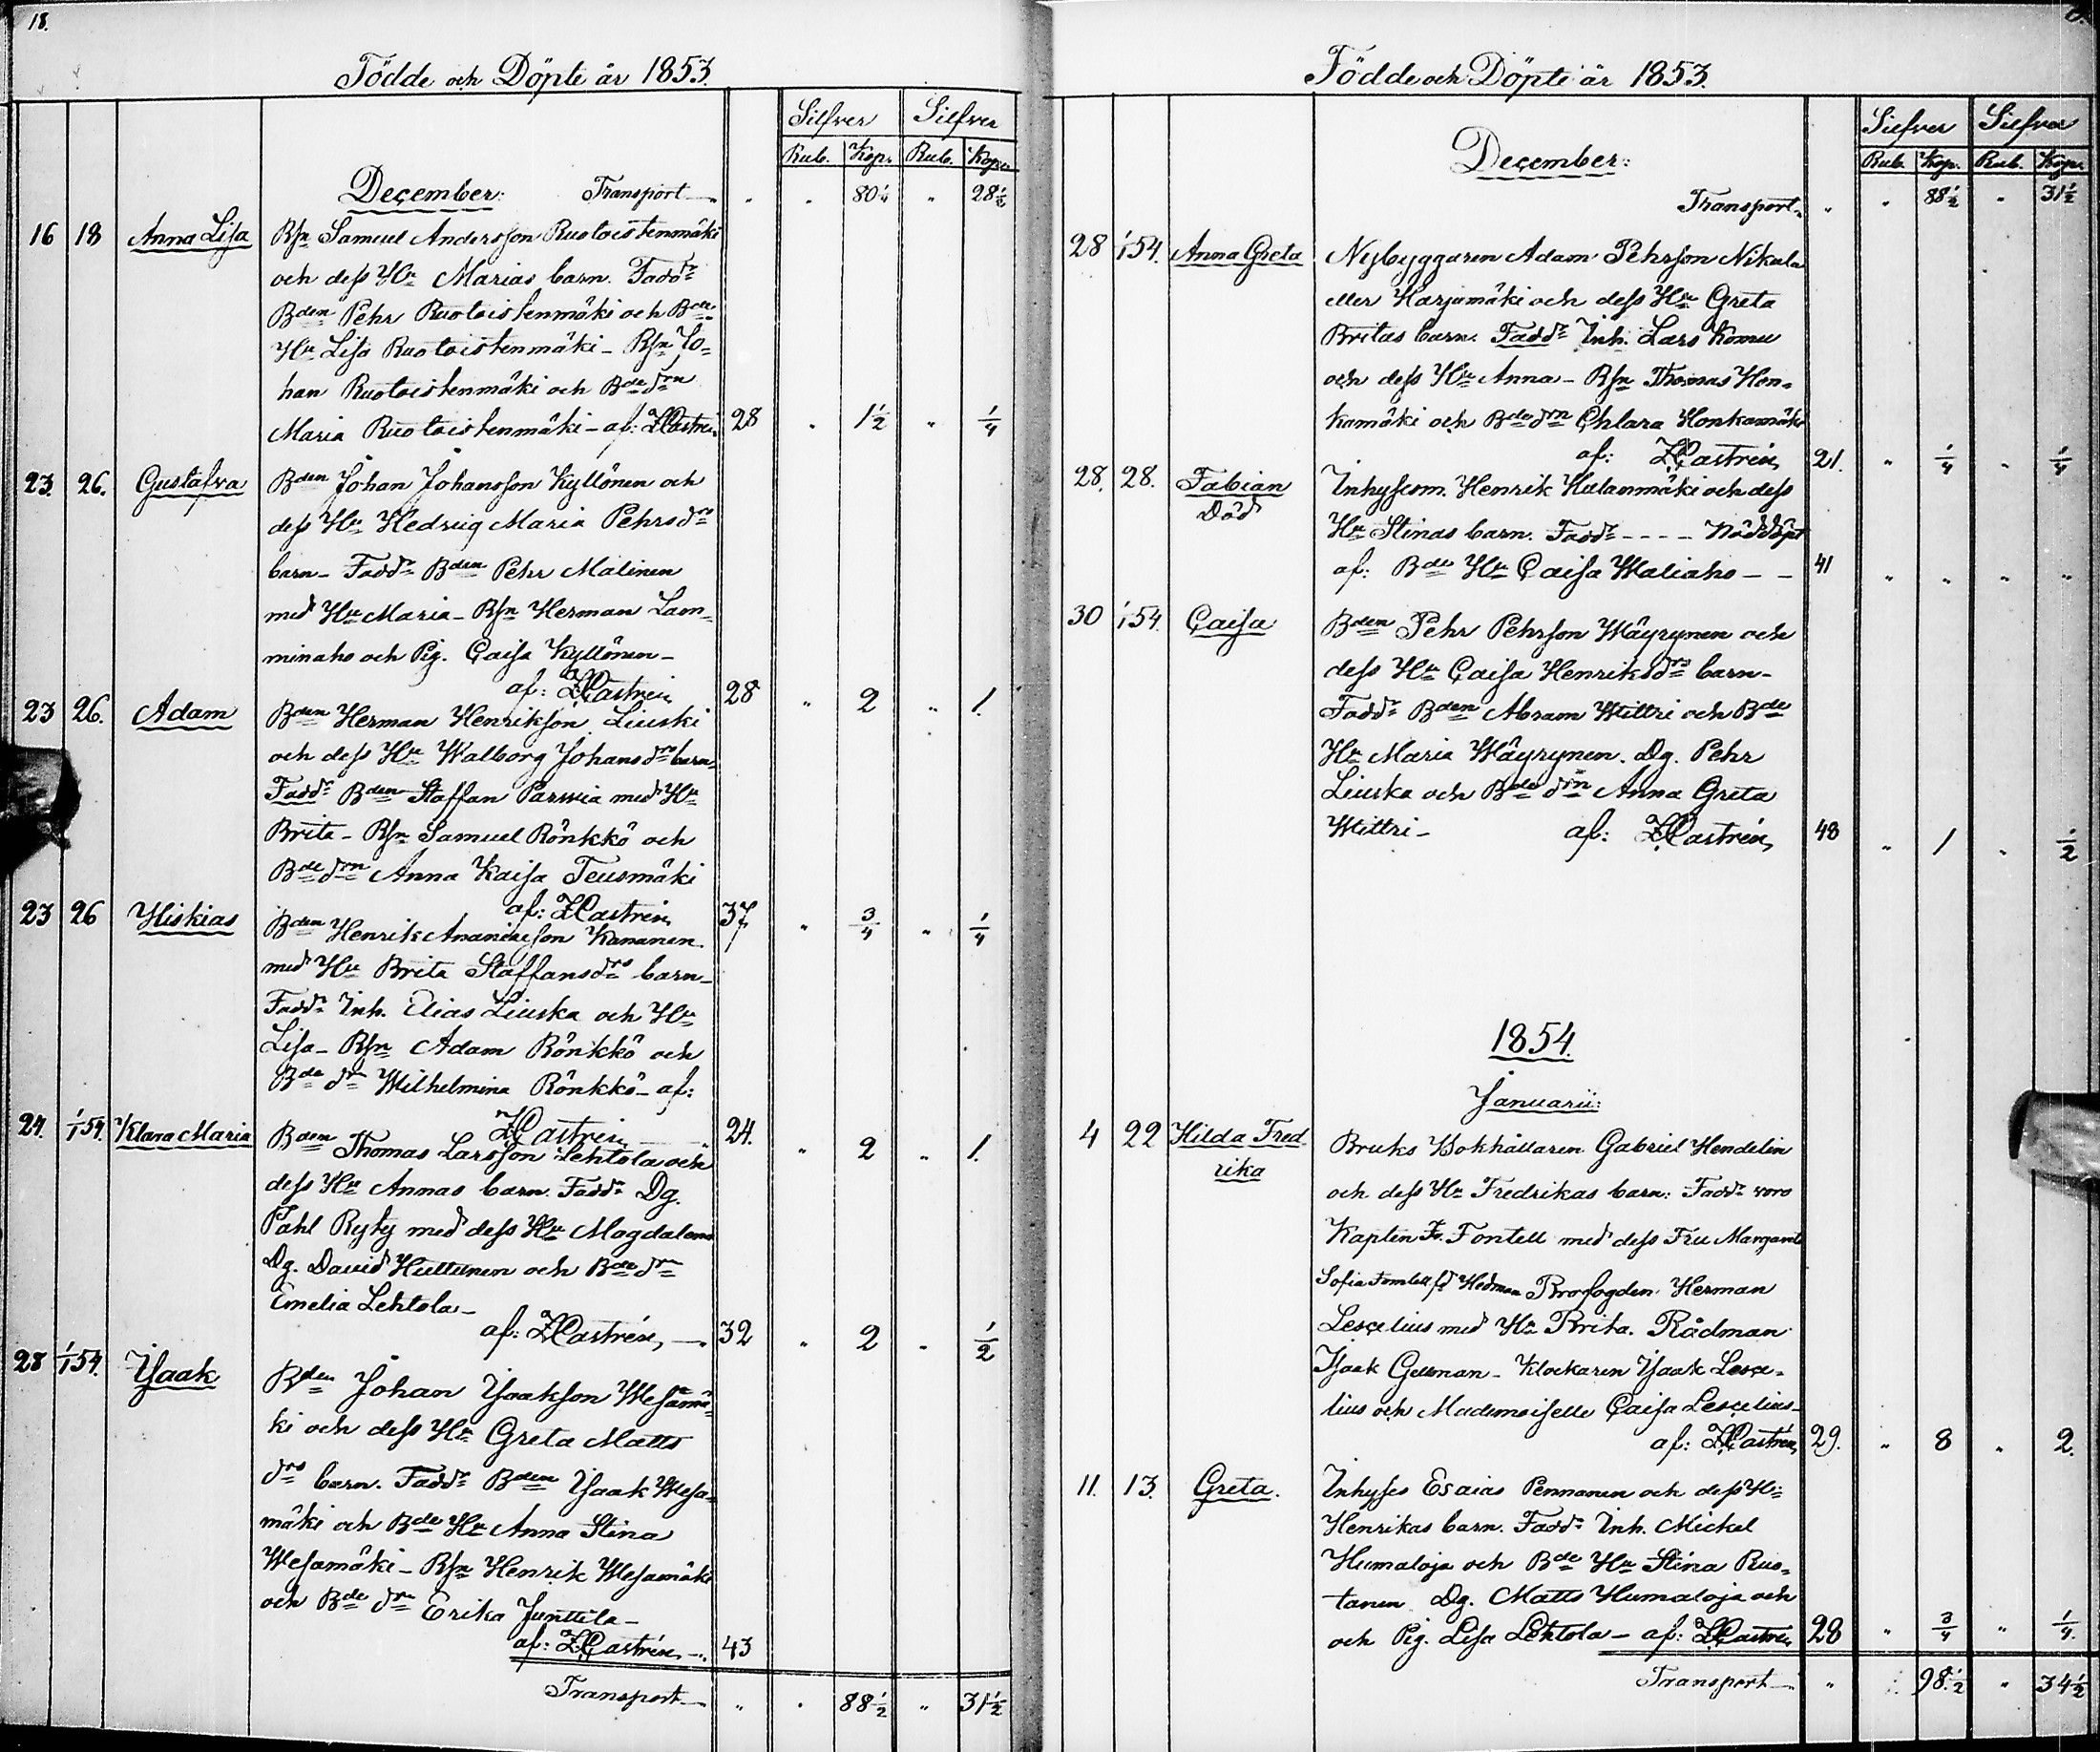 18.
Födde och Döpte år 1853.
Silfver Silfver
Rub. Kop. Rub. Kop.
December: Transport — " " 80¼ " 28½
16 18 Anna Lisa Bsn Samuel Andersson Ruotoistenmäki
och dess Hu Marias barn. Fadd:
Bden Pehr Ruotoistenmäki och Bde
Hu Lisa Ruotoistenmäki – Bsn Jo-
han Ruotoistenmäki och Bde drn
Maria Ruotoistenmäki – af: ZCastrén 28 " 1½ " ¼
23. 26. Gustafva Bden Johan Johansson Kyllönen och
dess Hu Hedvig Maria Pehrsdr
barn – Fadd: Bden Pehr Malinen
med Hu Maria – Bsn Herman Lam-
minaho och Pig. Caisa Kyllönen –
af: ZCastrén 28 " 2 " 1.
23 26. Adam Bden Herman Henrikson Liuski
och dess Hu Walborg Johansdrs barn
Fadd: Bden Staffan Parwia med Hu
Brita – Bsn Samuel Rönkkö och
Bde drn Anna Kaisa Teusmäki
af: ZCastrén 37 " ¾ " ¼
23 26 Hiskias Bden Henrik Ananiaeson Kananen
med Hu Brita Staffansdrs barn –
Fadd: Inh. Elias Liuska och Hu
Lisa – Bsn Adam Rönkkö och
Bde dr Wilhelmina Rönkkö – af:
ZCastrén 24. " 2 " 1.
24. 1/1 54. Klara Maria Bden Thomas Larsson Lehtola och
dess Hu Annas barn. Fadd: Dg.
Pahl Ryty med dess Hu Magdalena
Dg. David Huttunen och Bde dr
Emelia Lehtola –
af: ZCastrén, — 32 " 2 " ½
28 1/1 54. Isaak Bden Johan Isaakson Wesamä-
ki och dess Hu Greta Matts
drs barn. Fadd: Bden Isaak Wesa-
mäki och Bde Hu Anna Stina
Wesamäki – Bsn Henrik Wesamäki
och Bde dr Erika Junttila –
af: ZCastrén — 43
Transport — " " 88½ " 31½
Födde och Döpte år 1853.
Silfver Silfver
Rub. Kop. Rub. Kop.
December:
Transport — " " 88½ " 31½
28 1/1 54. Anna Greta Nybyggaren Adam Pehrson Nikula
eller Harjumäki och dess Hu Greta
Britas barn. Fadd: Inh. Lars Komu
och dess Hu Anna – Bsn Thomas Hon-
kamäki och Bde drn Chlara Honkamäki
af: ZCastrén 21. " ¼ " ¼
28. 28. Fabian Inhysesm. Henrik Hulanmäki och dess
Död Hu Stinas barn. Fadd: - - - - Nöddöpt
af: Bde Hu Caisa Waliaho – – 41 " " " "
30 1/1 54. Caisa Bden Pehr Pehrson Wäyrynen och
dess Hu Caisa Henriksdrs barn –
Fadd: Bden Abram Wittri och Bde
Hu Maria Wäyrynen. Dg. Pehr
Liuska och Bde drn Anna Greta
Wittri – af: ZCastrén, 48 " 1 " ½
1854.
Januarii:
4 22 Hilda Fred- Bruks Bokhållaren Gabriel Hendelin
rika och dess Hu Fredrikas barn: Fadd: voro
Kapten Fr. Fontell med dess Fru Margareta
Sofia Fontell fd Hedman Brofogden Herman
Lescelius med Hu Brita. Rådman
Isaak Gellman – Klockaren Isaak Lesce-
lius och Mademoiselle Caisa Lescelius –
af: ZCastrén, 29. " 8 " 2.
11. 13. Greta. Inhyses Esaias Pennanen och dess Hu
Henrikas barn. Fadd: Inh. Mickel
Humaloja och Bde Hu Stina Rus-
tanen Dg. Matts Humaloja och
och Pig. Lisa Lehtola – af: ZCastrén 28 " ¾ " ¼.
Transport — " " 98½ " 34½